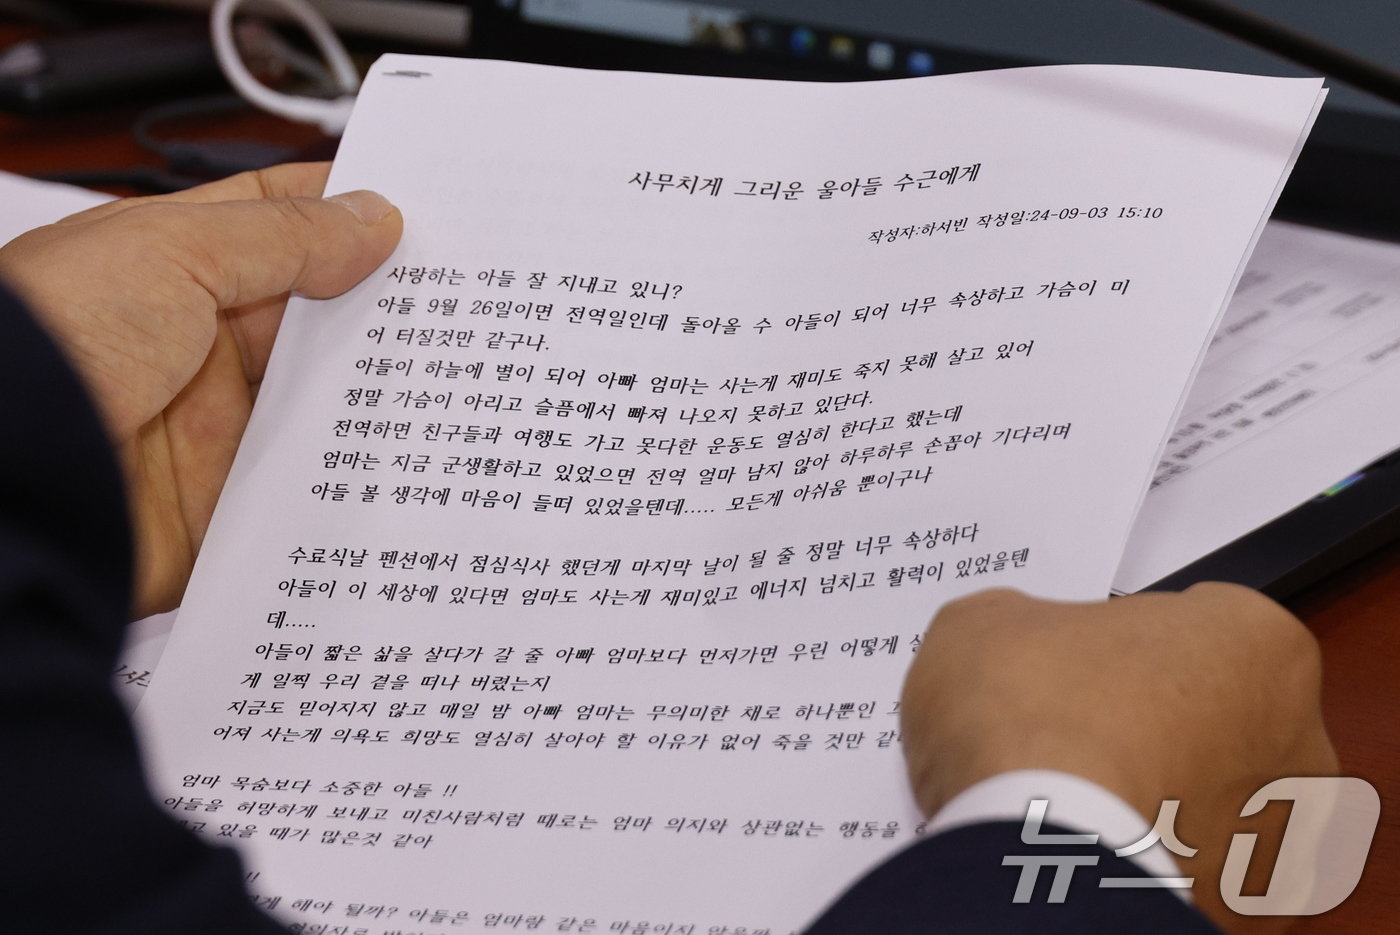 사무치게 그리운 울아들 수근에게
작성자:하서빈 작성일:24-09-03 15:10
사랑하는 아들 잘 지내고 있니?
아들 9월 26일이면 전역일인데 돌아올 수 아들이 되어 너무 속상하고 가슴이 미
어 터질것만 같구나.
아들이 하늘에 별이 되어 아빠 엄마는 사는게 재미도 죽지 못해 살고 있어
정말 가슴이 아리고 슬픔에서 빠져 나오지 못하고 있단다.
전역하면 친구들과 여행도 가고 못다한 운동도 열심히 한다고 했는데
엄마는 지금 군생활하고 있었으면 전역 얼마 남지 않아 하루하루 손꼽아 기다리며
아들 볼 생각에 마음이 들떠 있었을텐데..... 모든게 아쉬움 뿐이구나
수료식날 펜션에서 점심식사 했던게 마지막 날이 될 줄 정말 너무 속상하다
아들이 이 세상에 있다면 엄마도 사는게 재미있고 에너지 넘치고 활력이 있었을텐
데.....
아들이 짧은 삶을 살다가 갈 줄 아빠 엄마보다 먼저가면 우린 어떻게
게 일찍 우리 곁을 떠나 버렸는지
지금도 믿어지지 않고 매일 밤 아빠 엄마는 무의미한 채로 하나뿐인
어져 사는게 의욕도 희망도 열심히 살아야 할 이유가 없어 죽을 것만 같
엄마 목숨보다 소중한 아들 !!
아들을 허망하게 보내고 미친사람처럼 때로는 엄마 의지와 상관없는 행동을
있을 때가 많은것 같아
!!
해야 될까? 아들은 엄마랑 같은 마음이지 않을까
뉴스1